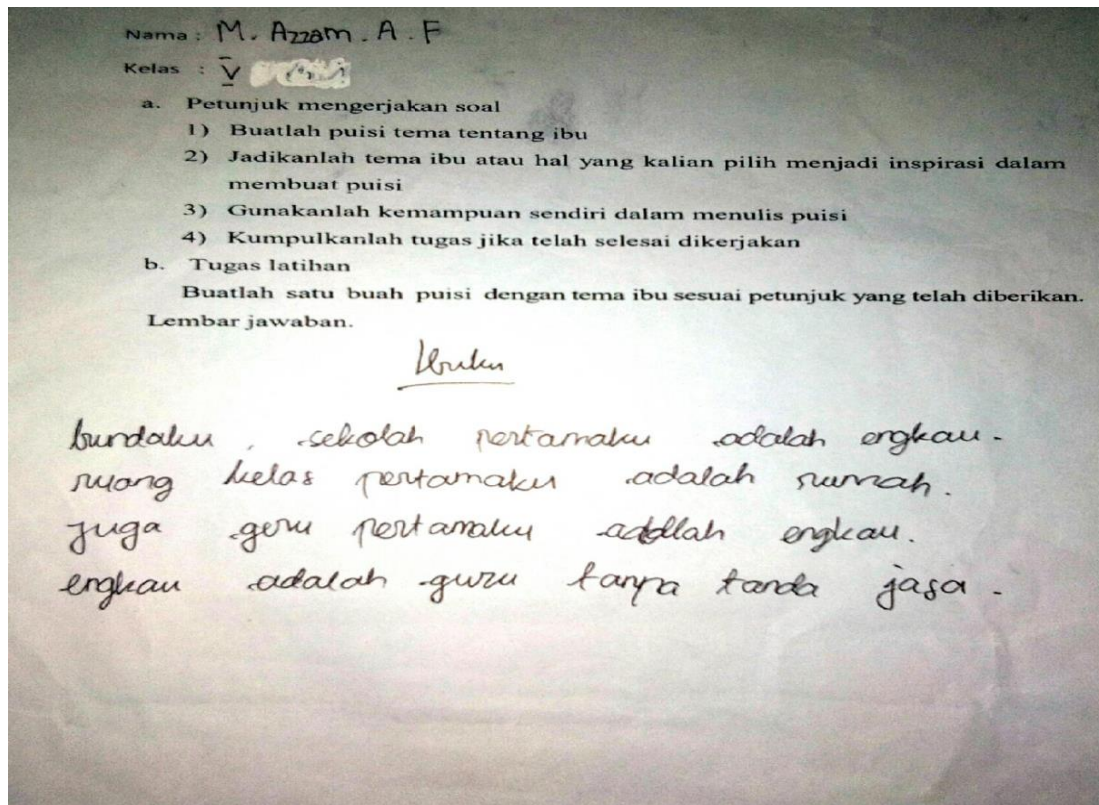 Nama : M. Azzam . A . F
Kelas : V
a. Petunjuk mengerjakan soal
1) Buatlah puisi tema tentang ibu
2) Jadikanlah tema ibu atau hal yang kalian pilih menjadi inspirasi dalam
membuat puisi
3) Gunakanlah kemampuan sendiri dalam menulis puisi
4) Kumpulkanlah tugas jika telah selesai dikerjakan
b. Tugas latihan
Buatlah satu buah puisi dengan tema ibu sesuai petunjuk yang telah diberikan.
Lembar jawaban.
Ibuku
bundaku , sekolah pertamaku adalah engkau.
ruang kelas pertamaku adalah rumah.
juga guru pertamaku adallah engkau.
engkau adalah guru tanpa tanda jasa.